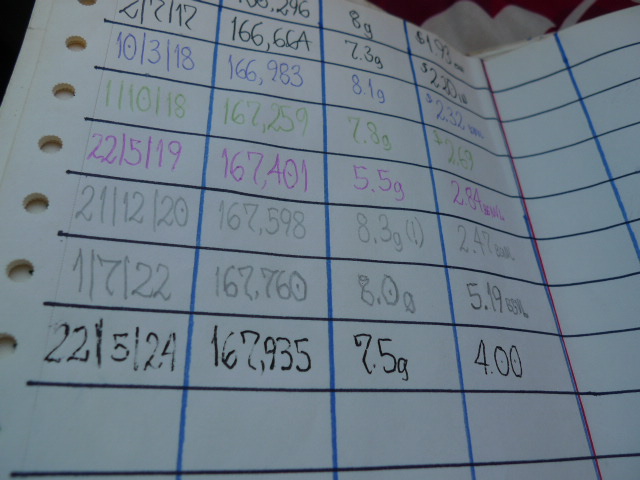 2/7/17 166,664 7.3g
10/3/18 166,983 8.1g
1/10/18 167,259 7.8g $2.69
22/5/19 167,401 5.5g 2.84
21/12/20 167,598 8.3g(!) 2.47
1/7/22 167,760 8.0g 5.19
22/5/24 167,935 7.5g 4.00